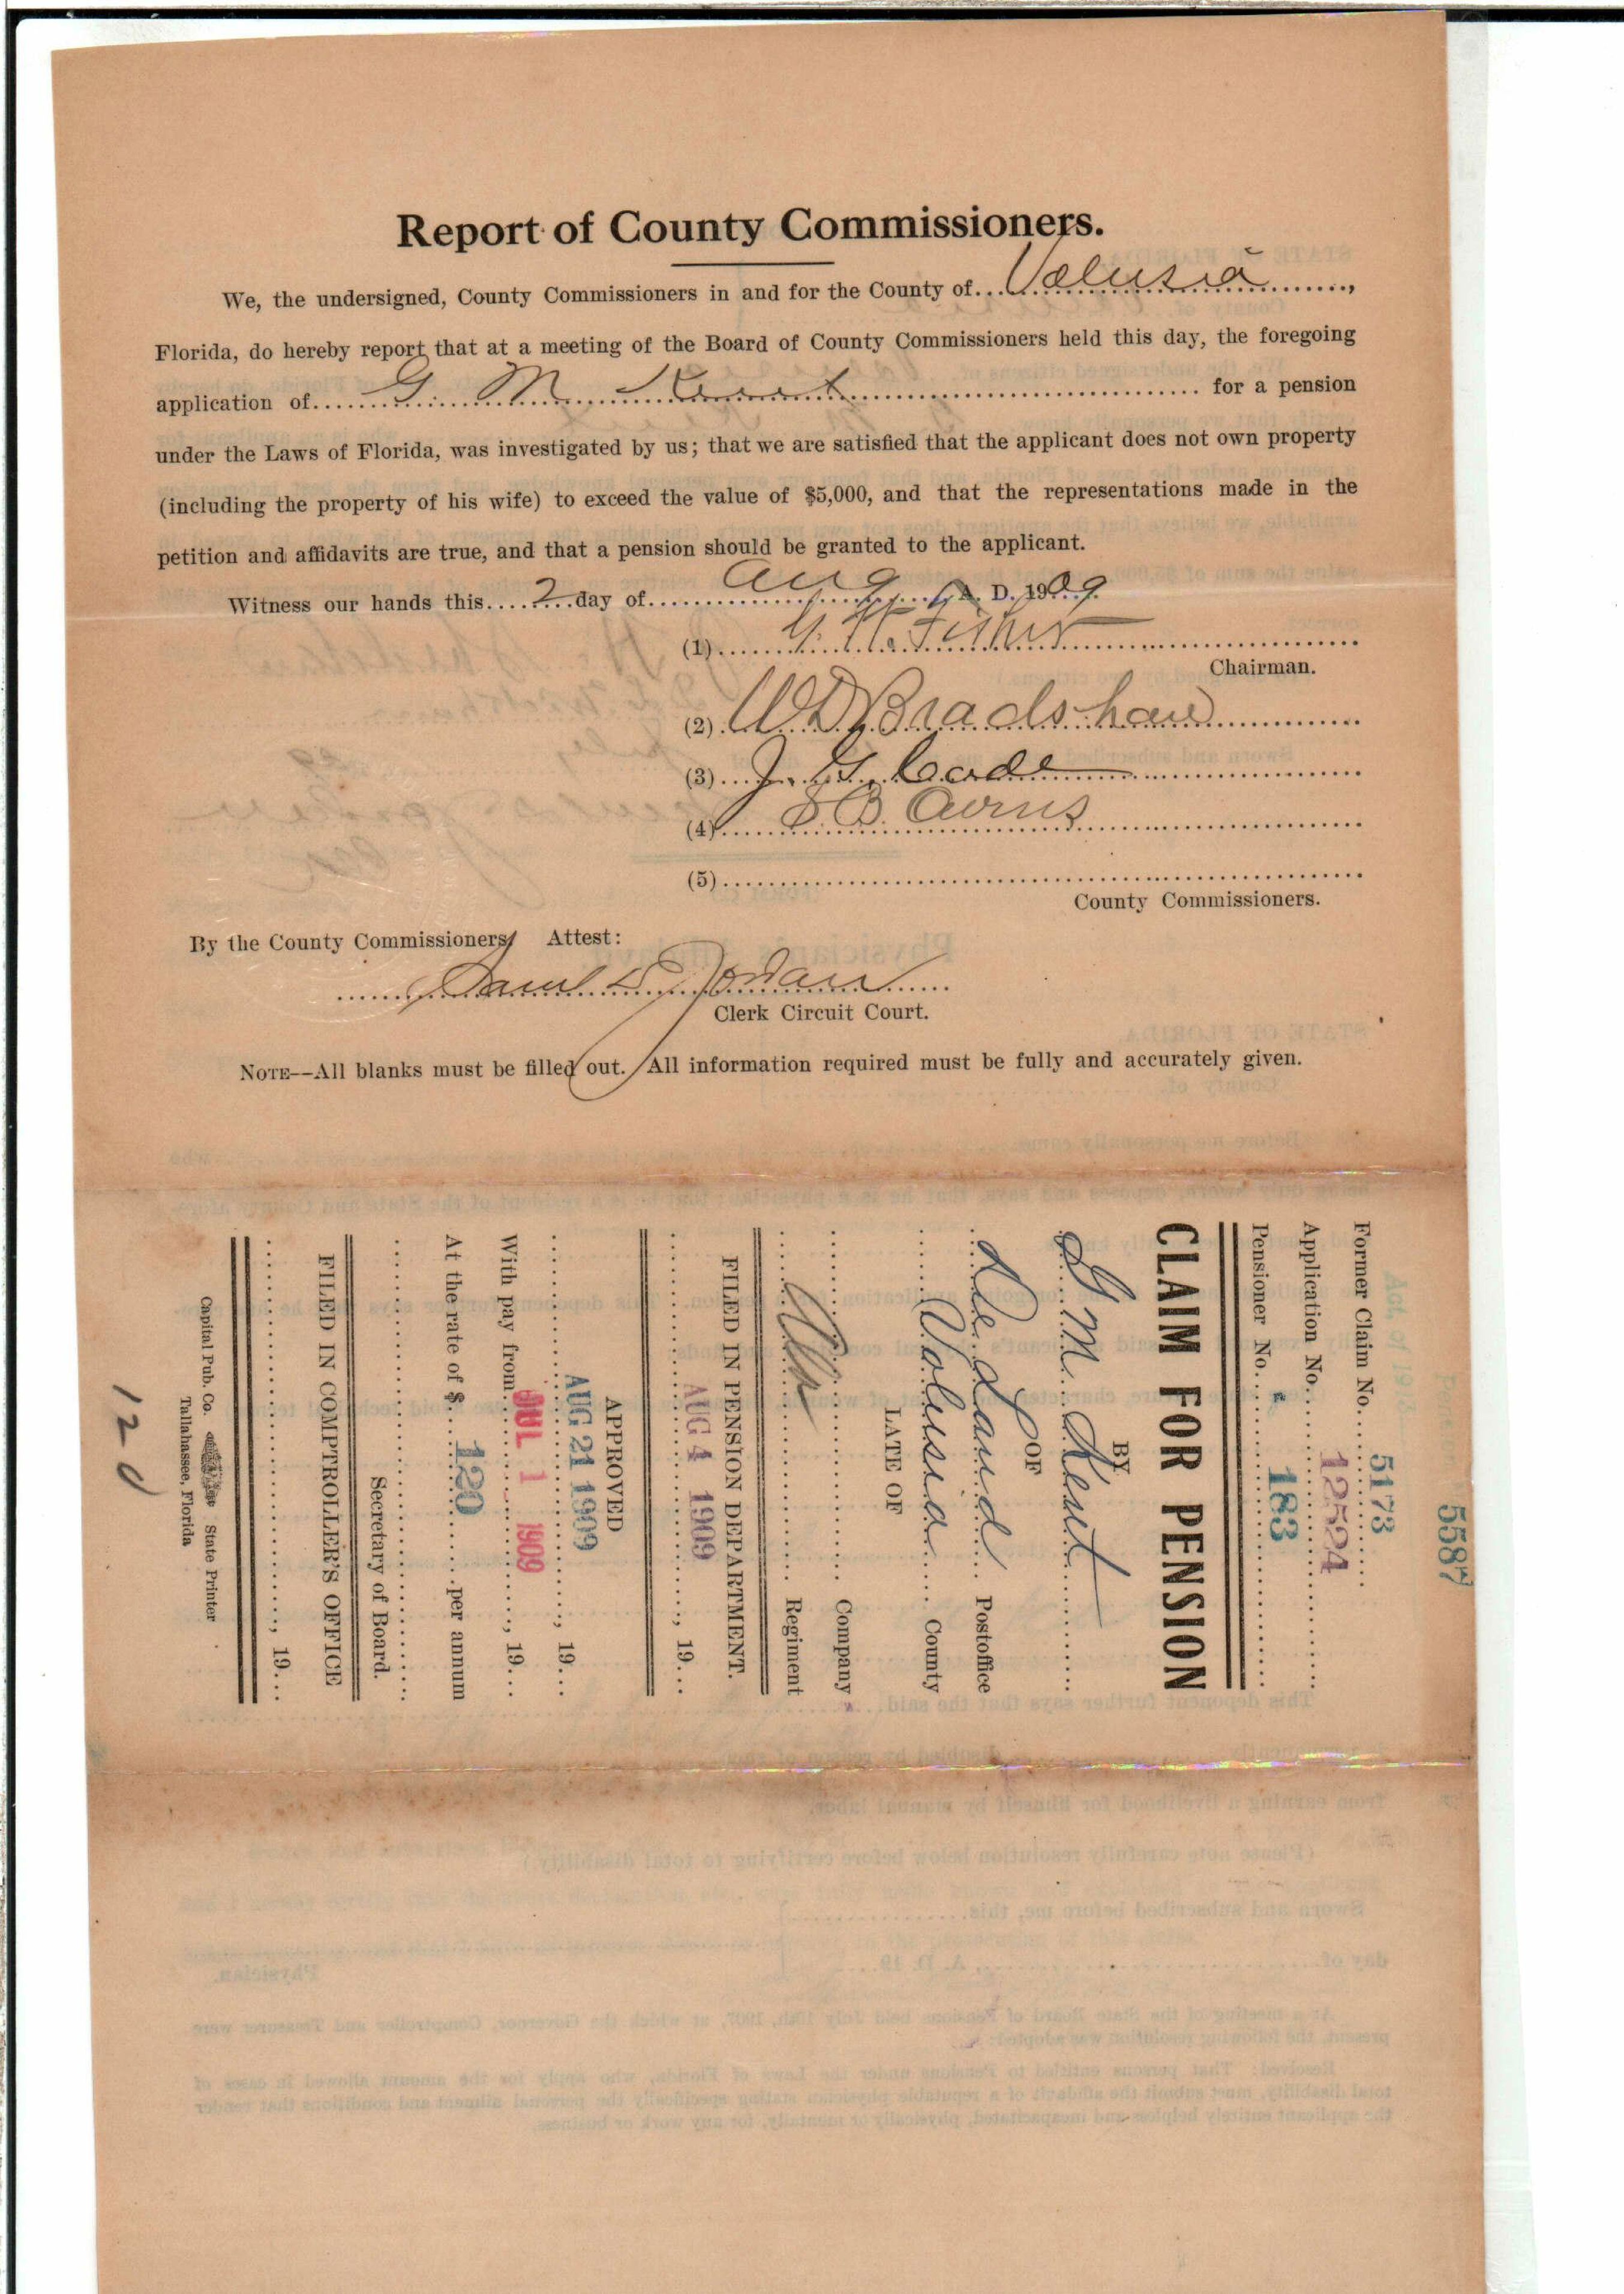 Report of County Commissioners.
We, the undersigned, County Commissioners in and for the County of Volusia,
Florida, do hereby report that at a meeting of the Board of County Commissioners held this day, the foregoing
application of G M Kent for a pension
under the Laws of Florida, was investigated by us; that we are satisfied that the applicant does not own property
(including the property of his wife) to exceed the value of $5,000, and that the representations made in the
petition and affidavits are true, and that a pension should be granted to the applicant.
Witness our hands this 2 day of Aug A. D. 1909
(1)
Chairman.
(2) W D Bradshaw
(3) J. G.
(4) S B
(5)
County Commissioners.
By the County Commissioners, Attest:
Saml D Jordan
Clerk Circuit Court.
NOTE--All blanks must be filled out. All information required must be fully and accurately given.
5587
Former Claim No. 5173
Application No. 12524
Pensioner No. 183
CLAIM FOR PENSION
BY
G M Kent
OF
De Land Postoffice
Volusia County
LATE OF
Company
Regiment
FILED IN PENSION DEPARTMENT.
AUG 4 1909, 19
APPROVED
AUG 21 1909, 19
With pay from JUL 1 1909, 19
At the rate of $ 120 per annum
Secretary of Board.
FILED IN COMPTROLLER'S OFFICE
, 19
Capital Pub. Co. State Printer
Tallahassee, Florida
120